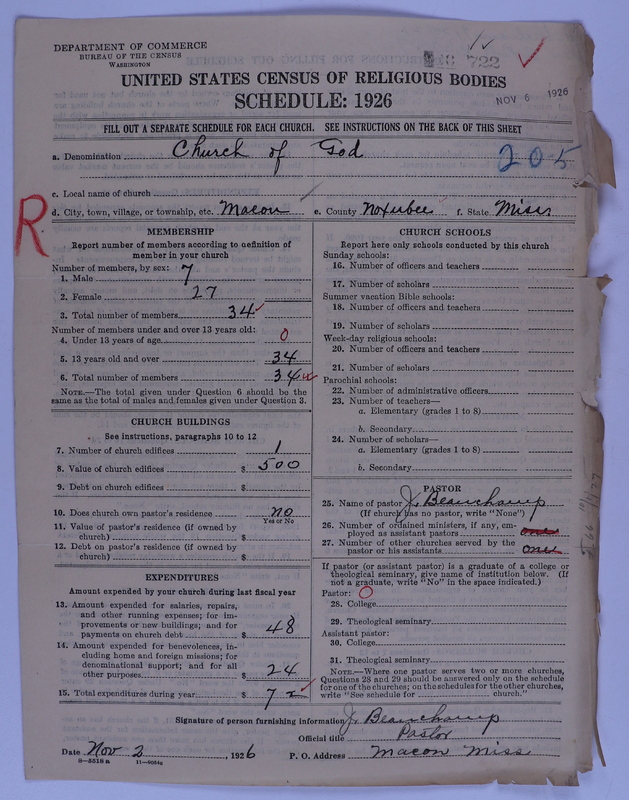 DEPARTMENT OF COMMERCE
BUREAU OF THE CENSUS
WASHINGTON
722
NOV 6 1926
UNITED STATES CENSUS OF RELIGIOUS BODIES
SCHEDULE: 1926
FILL OUT A SEPARATE SCHEDULE FOR EACH CHURCH. SEE INSTRUCTIONS ON THE BACK OF THIS SHEET
a. Denomination Church of God
205
c. Local name of church
d. City, town, village, or township, etc. Macon e. County Noxubee f. State Miss
R
MEMBERSHIP
Report number of members according to definition of
member in your church
Number of members, by sex:
1. Male 7
2. Female 27
3. Total number of members 34
Number of members under and over 13 years old:
4. Under 13 years of age 0
5. 13 years old and over 34
6. Total number of members 34
NOTE.—The total given under Question 6 should be
same as the total of males and females given under Question 3.
CHURCH BUILDINGS
See instructions, paragraphs 10 to 12
7. Number of church edifices 1
8. Value of church edifices $ 500
9. Debt on church edifices $
10. Does church own pastor's residence? no
Yes or No
11. Value of pastor's residence (if owned by
church) $
12. Debt on pastor's residence (if owned by
church) $
EXPENDITURES
Amount expended by your church during last fiscal year
13. Amount expended for salaries, repairs,
and other running expenses; for im-
provements or new buildings; and for
payments on church debt $ 48
14. Amount expended for benevolences, in-
cluding home and foreign missions; for
denominational support; and for all
other purposes $ 24
15. Total expenditures during year $ 72
CHURCH SCHOOLS
Report here only schools conducted by this church
Sunday schools:
16. Number of officers and teachers
17. Number of scholars
Summer vacation Bible schools:
18. Number of officers and teachers
19. Number of scholars
Week-day religious schools:
20. Number of officers and teachers
21. Number of scholars
Parochial schools:
22. Number of administrative officers
23. Number of teachers—
a. Elementary (grades 1 to 8)
b. Secondary
24. Number of scholars—
a. Elementary (grades 1 to 8)
b. Secondary
PASTOR
25. Name of pastor J. Beauchamp
(If church has no pastor, write "None")
26. Number of ordained ministers, if any, em-
ployed as assistant pastors one
27. Number of other churches served by the
pastor or his assistants one
If pastor (or assistant pastor) is a graduate of a college or
theological seminary, give name of institution below. (If
not a graduate, write "No" in the space indicated.)
Pastor: 0
28. College
29. Theological seminary
Assistant pastor:
30. College
31. Theological seminary
NOTE.—Where one pastor serves two or more churches,
Questions 28 and 29 should be answered only on the schedule
for one of the churches; on the schedules for the other churches,
write "See schedule for church."
Signature of person furnishing information J. Beauchamp
Official title Pastor
Date Nov 2, 1926 P. O. Address Macon Miss
8—5518 a